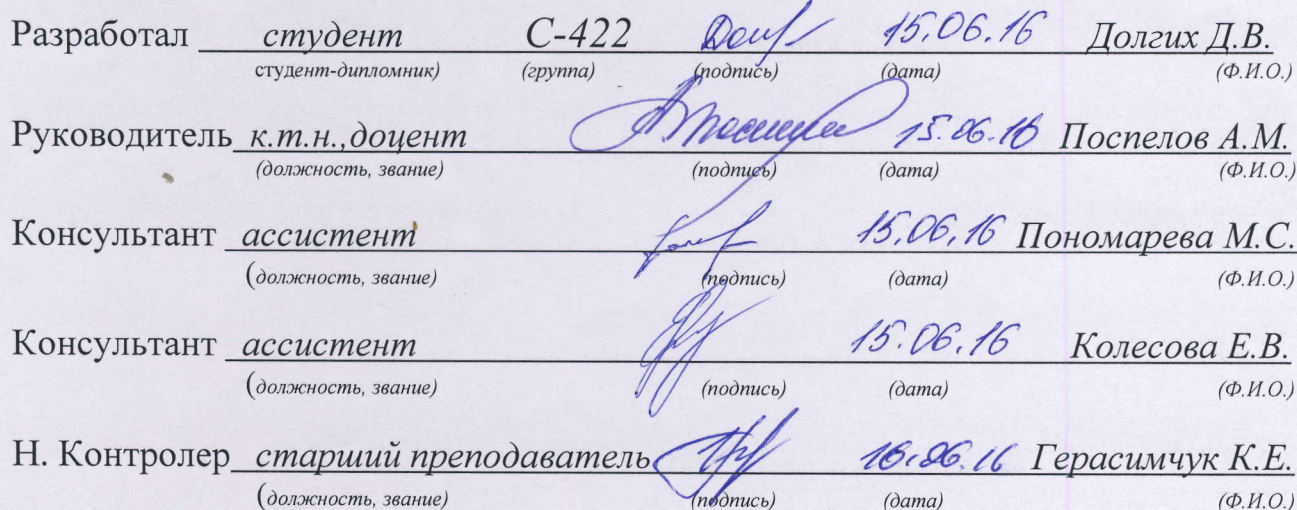 Разработал студент С-422 15.06.16 Долгих Д.В.
студент-дипломник) (группа) (подпись) (дата) (Ф.И.О.)
Руководитель к.т.н.,доцент 15.06.16 Поспелов А.М.
(должность, звание) (подпись) (дата) (Ф.И.О.)
Консультант ассистент 15.06.16 Пономарева М.С.
(должность, звание) (подпись) (дата) (Ф.И.О.)
Консультант ассистент 15.06.16 Колесова Е.В.
(должность, звание) (подпись) (дата) (Ф.И.О.)
Н. Контролер старший преподаватель 16.06.16 Герасимчук К.Е.
(должность, звание) (подпись) (дата) (Ф.И.О.)